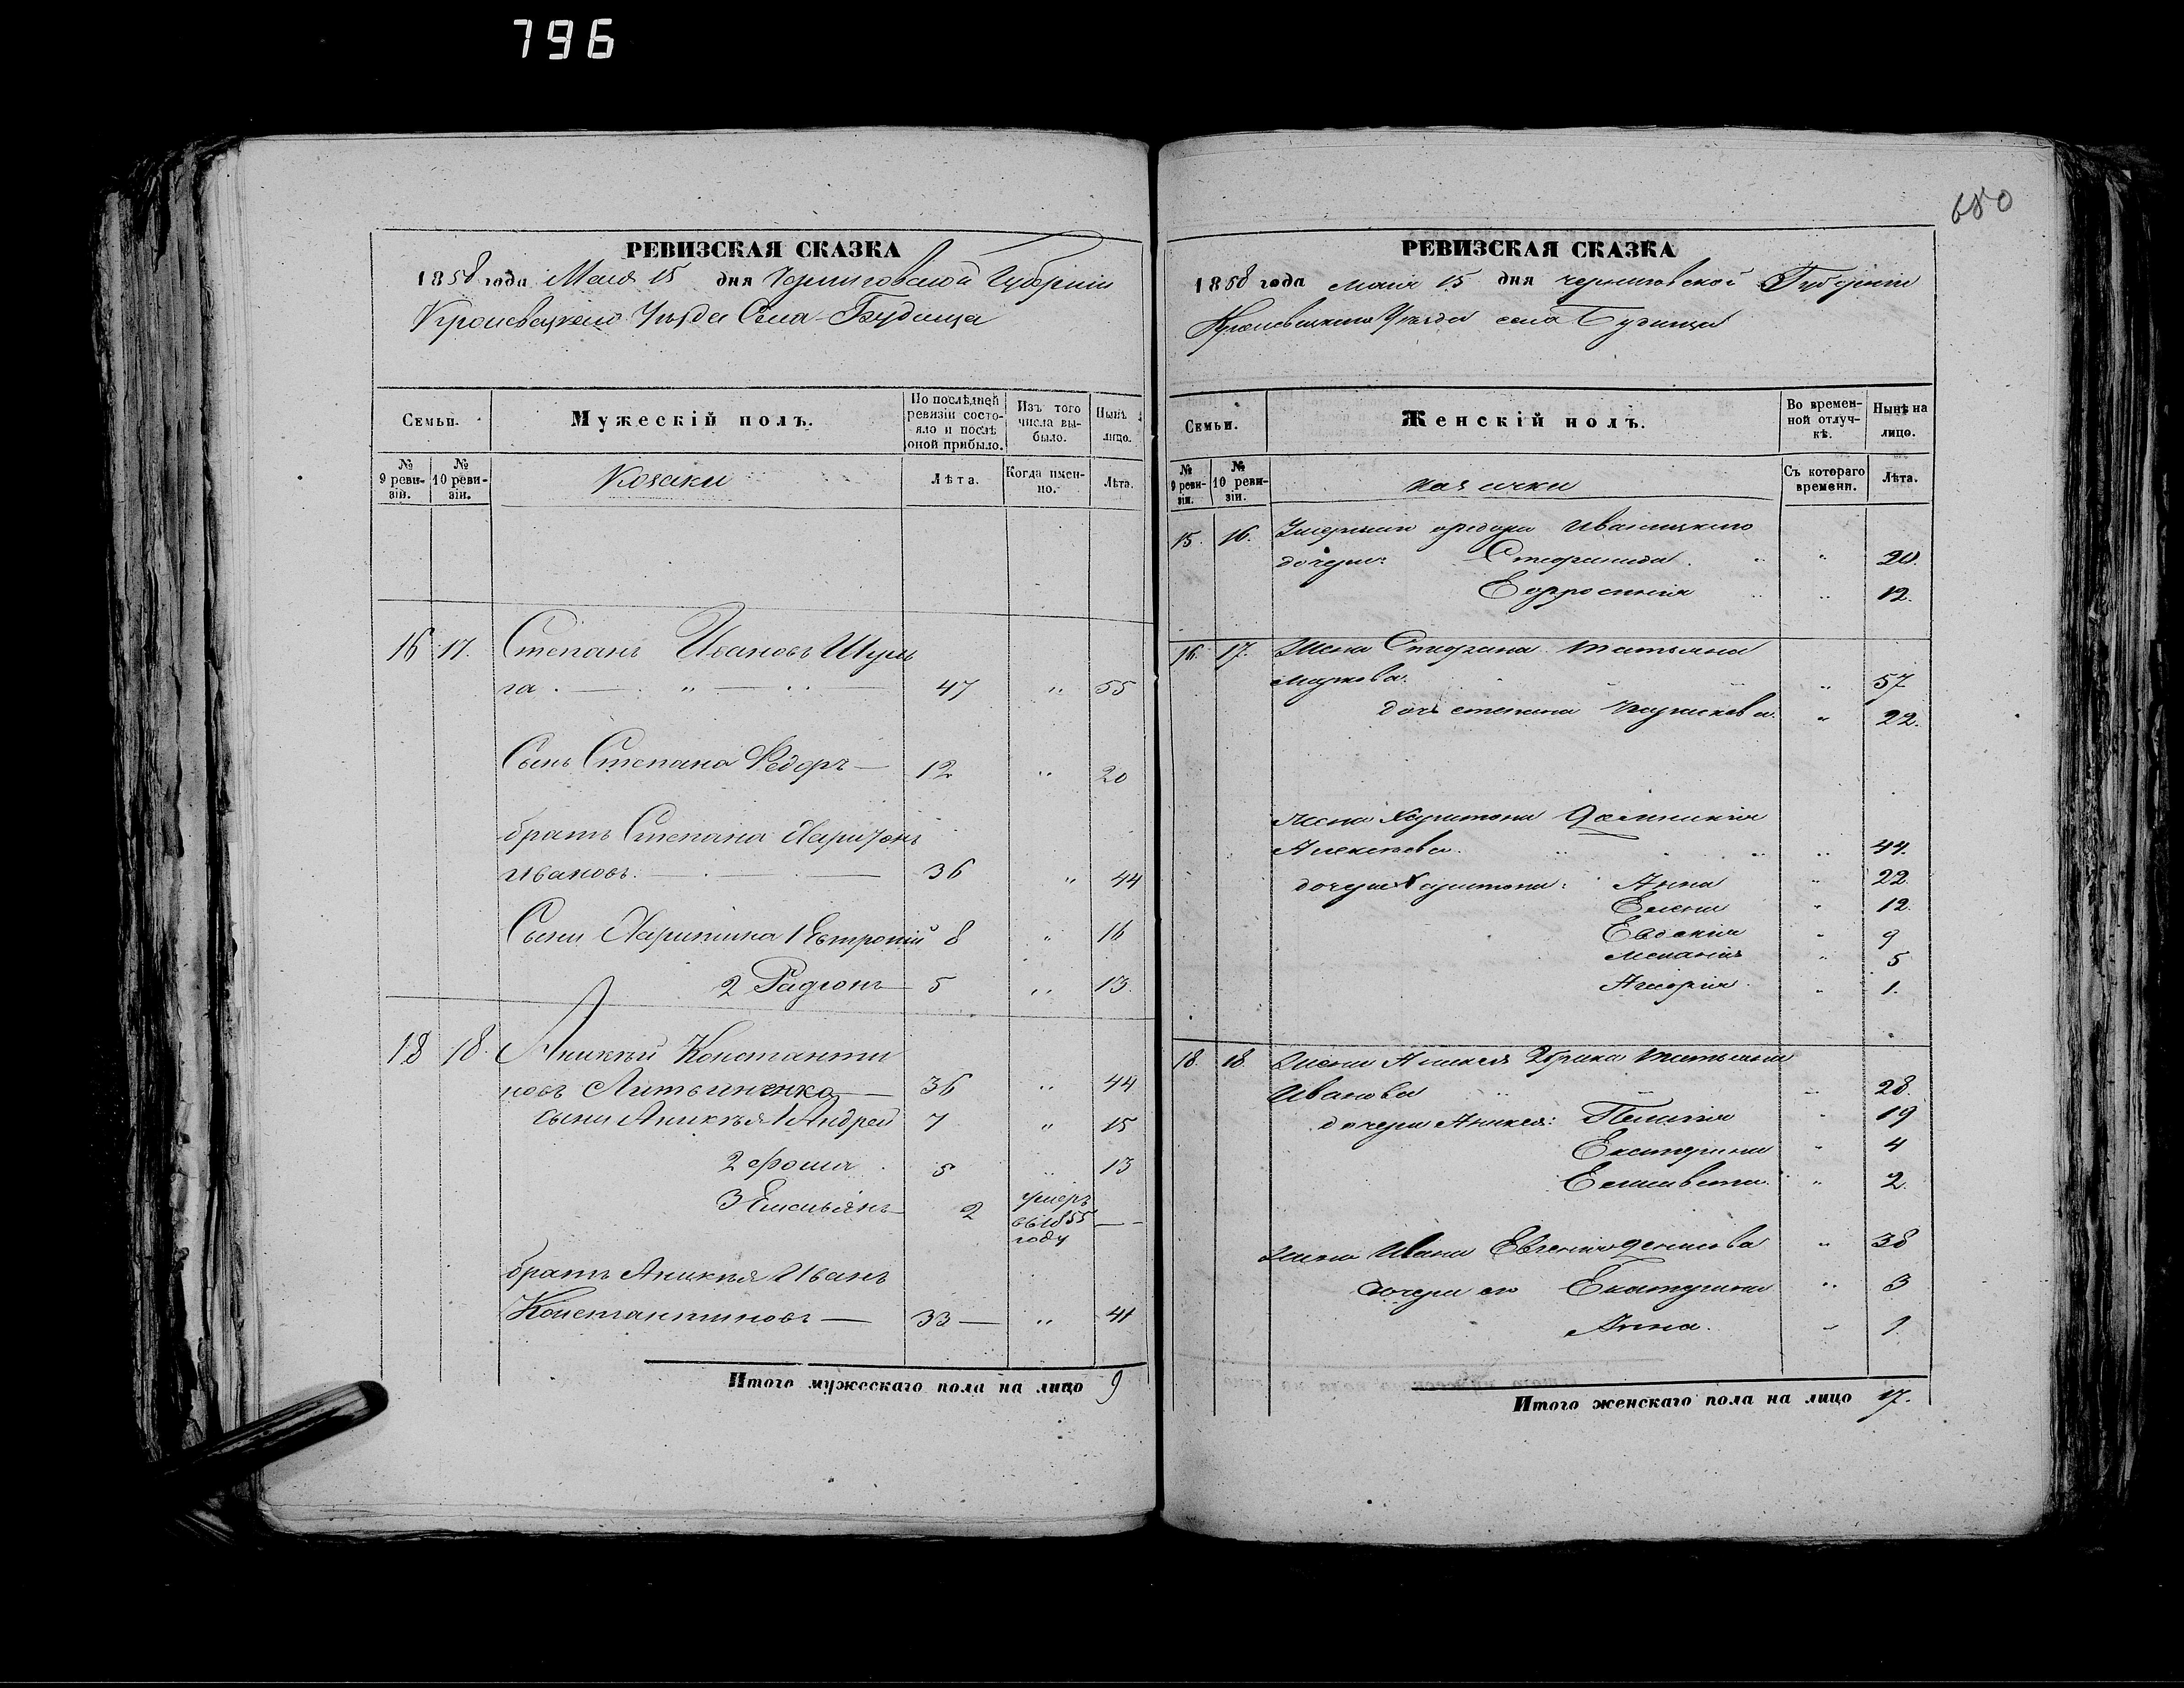 796
680
РЕВИЗСКАЯ СКАЗКА
1858 года Мая 15 дня Черниговской Губернии
Кролевецкаго Уѣзда Села Будища
Семьи.
Мужескій полъ.
По послѣдней ревизіи состояло и послѣ оной прибыло.
Изъ того числа выбыло.
Нынѣ лицо.
№ 9 ревизіи.
№ 10 ревизіи.
Козаки
Лѣта.
Когда именно.
Лѣта.
16 17. Степанъ Ивановъ Шуль
га 47 " 55
Сынъ Степана Федоръ 12 " 20
братъ Степана Харитонъ
Ивановъ. 36 " 44
Сыни Харитина 1 Евтропій 8 " 16
2 Радіонъ 5 " 13
18 18. Аникѣй Константи
новъ Литвиненко 36 " 44
сыни Аникѣя 1 Андрей 7 " 15
2 Фома 5 " 13
3 Емельянъ 2 умеръ
въ 1855
году
братъ Аникѣя Иванъ
Константиновъ 33 " 41
Итого мужескаго пола на лицо 9
РЕВИЗСКАЯ СКАЗКА
1858 года маія 15 дня черниговской Губерніи
Кролевецкаго Уѣзда села Будища
Семьи.
Женскій полъ.
Во временной отлучкѣ.
Нынѣ на лицо.
№ 9 ревизіи.
№ 10 ревизіи.
казачки
Съ котораго времени.
Лѣта.
15. 16. Иваницкаго
дочери: Степанида " 20.
Ефросинія " 12.
16. 17. Жена Степана Татьяна
Маркова. " 57
дочь степана " 22.
жена Харитона
Алексѣева. " 44.
дочери Харитона: Анна " 22
Елена " 12.
Евдокія " 9
Меланія " 5
" 1.
18. 18. Жена Аникея 2 брака Татьяна
Иванова " 28.
дочери Аникея: Пелагія " 19
Екатерина " 4
Елисавета " 2.
Жена Ивана Евгенія Денисова " 38
дочери его Екатерина " 3
Анна. " 1.
Итого женскаго пола на лицо 17.